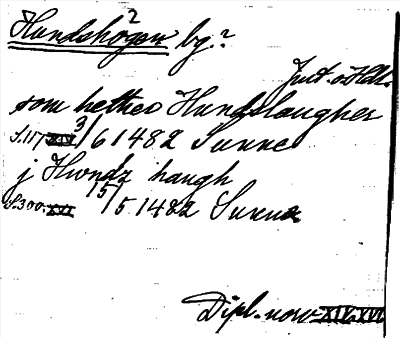 Hundshögen by?
Jutl. o Häll.
som hether Hundslaugher
S. 117 XIV 3/6 1482 Sunne
j Hwndz haugh
S. 300. XVI 15/5 1482 Sunne
Dipl. norv XIV. XVI